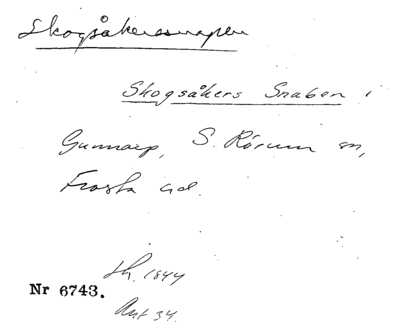 Skogsåkerssnapen
Skogsåkers Snaben i
Gunnarp, S. Rörum sn,
Frosta hd.
Sk. 1844
Nr 6743.
Akt 34.